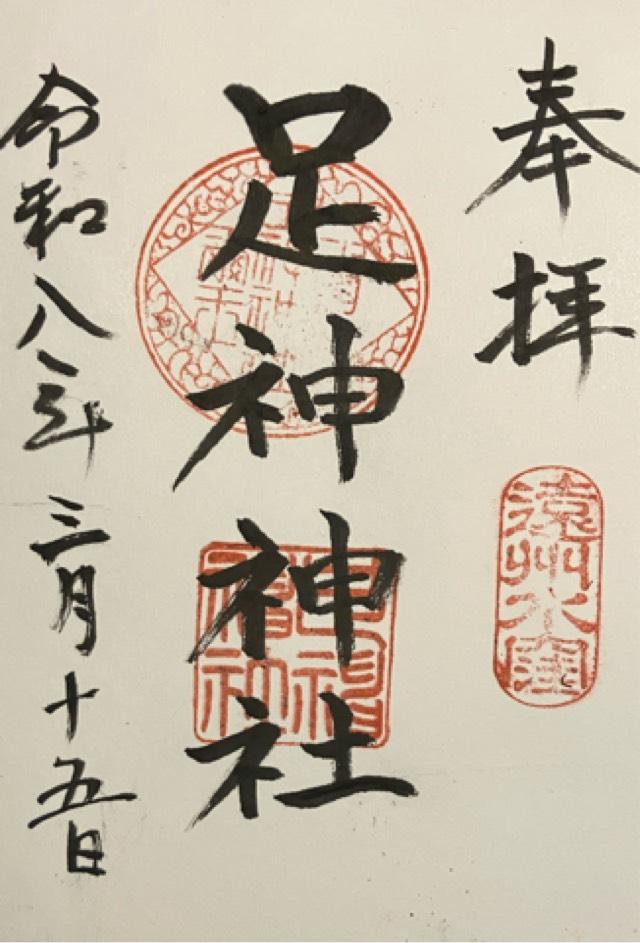 奉拝
遠州水窪
足神神社
令和八年三月十五日